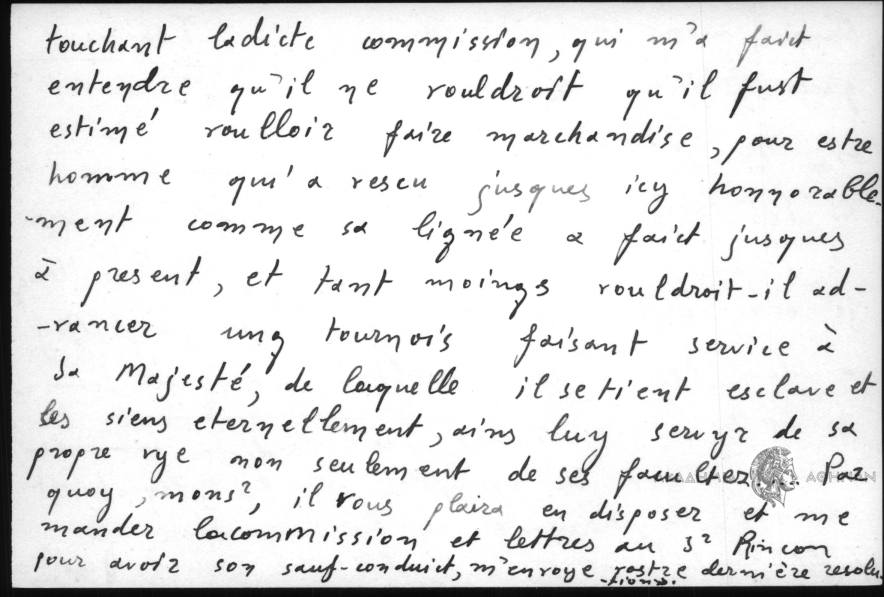 touchant ladicte commission, qui m'a faict
entendre qu'il ne vouldroit qu'il fust
estimé voulloir faire marchandise, pour estre
homme qui a vescu jusques icy honnorable-
-ment comme sa lignée a faict jusques
à present, et tant moings vouldroit-il ad-
-vancer ung tournois faisant service à
Sa Majesté, de laquelle il se tient esclave et
les siens eternellement, ains luy servyr de sa
propre vye non seulement de ses facultez.... Par
quoy, monsr, il vous plaira en disposer et me
mander la commission et lettres au Sr Rincon
pour avoir son sauf-conduict, m'envoye vostre dernière resolu-
-tion.